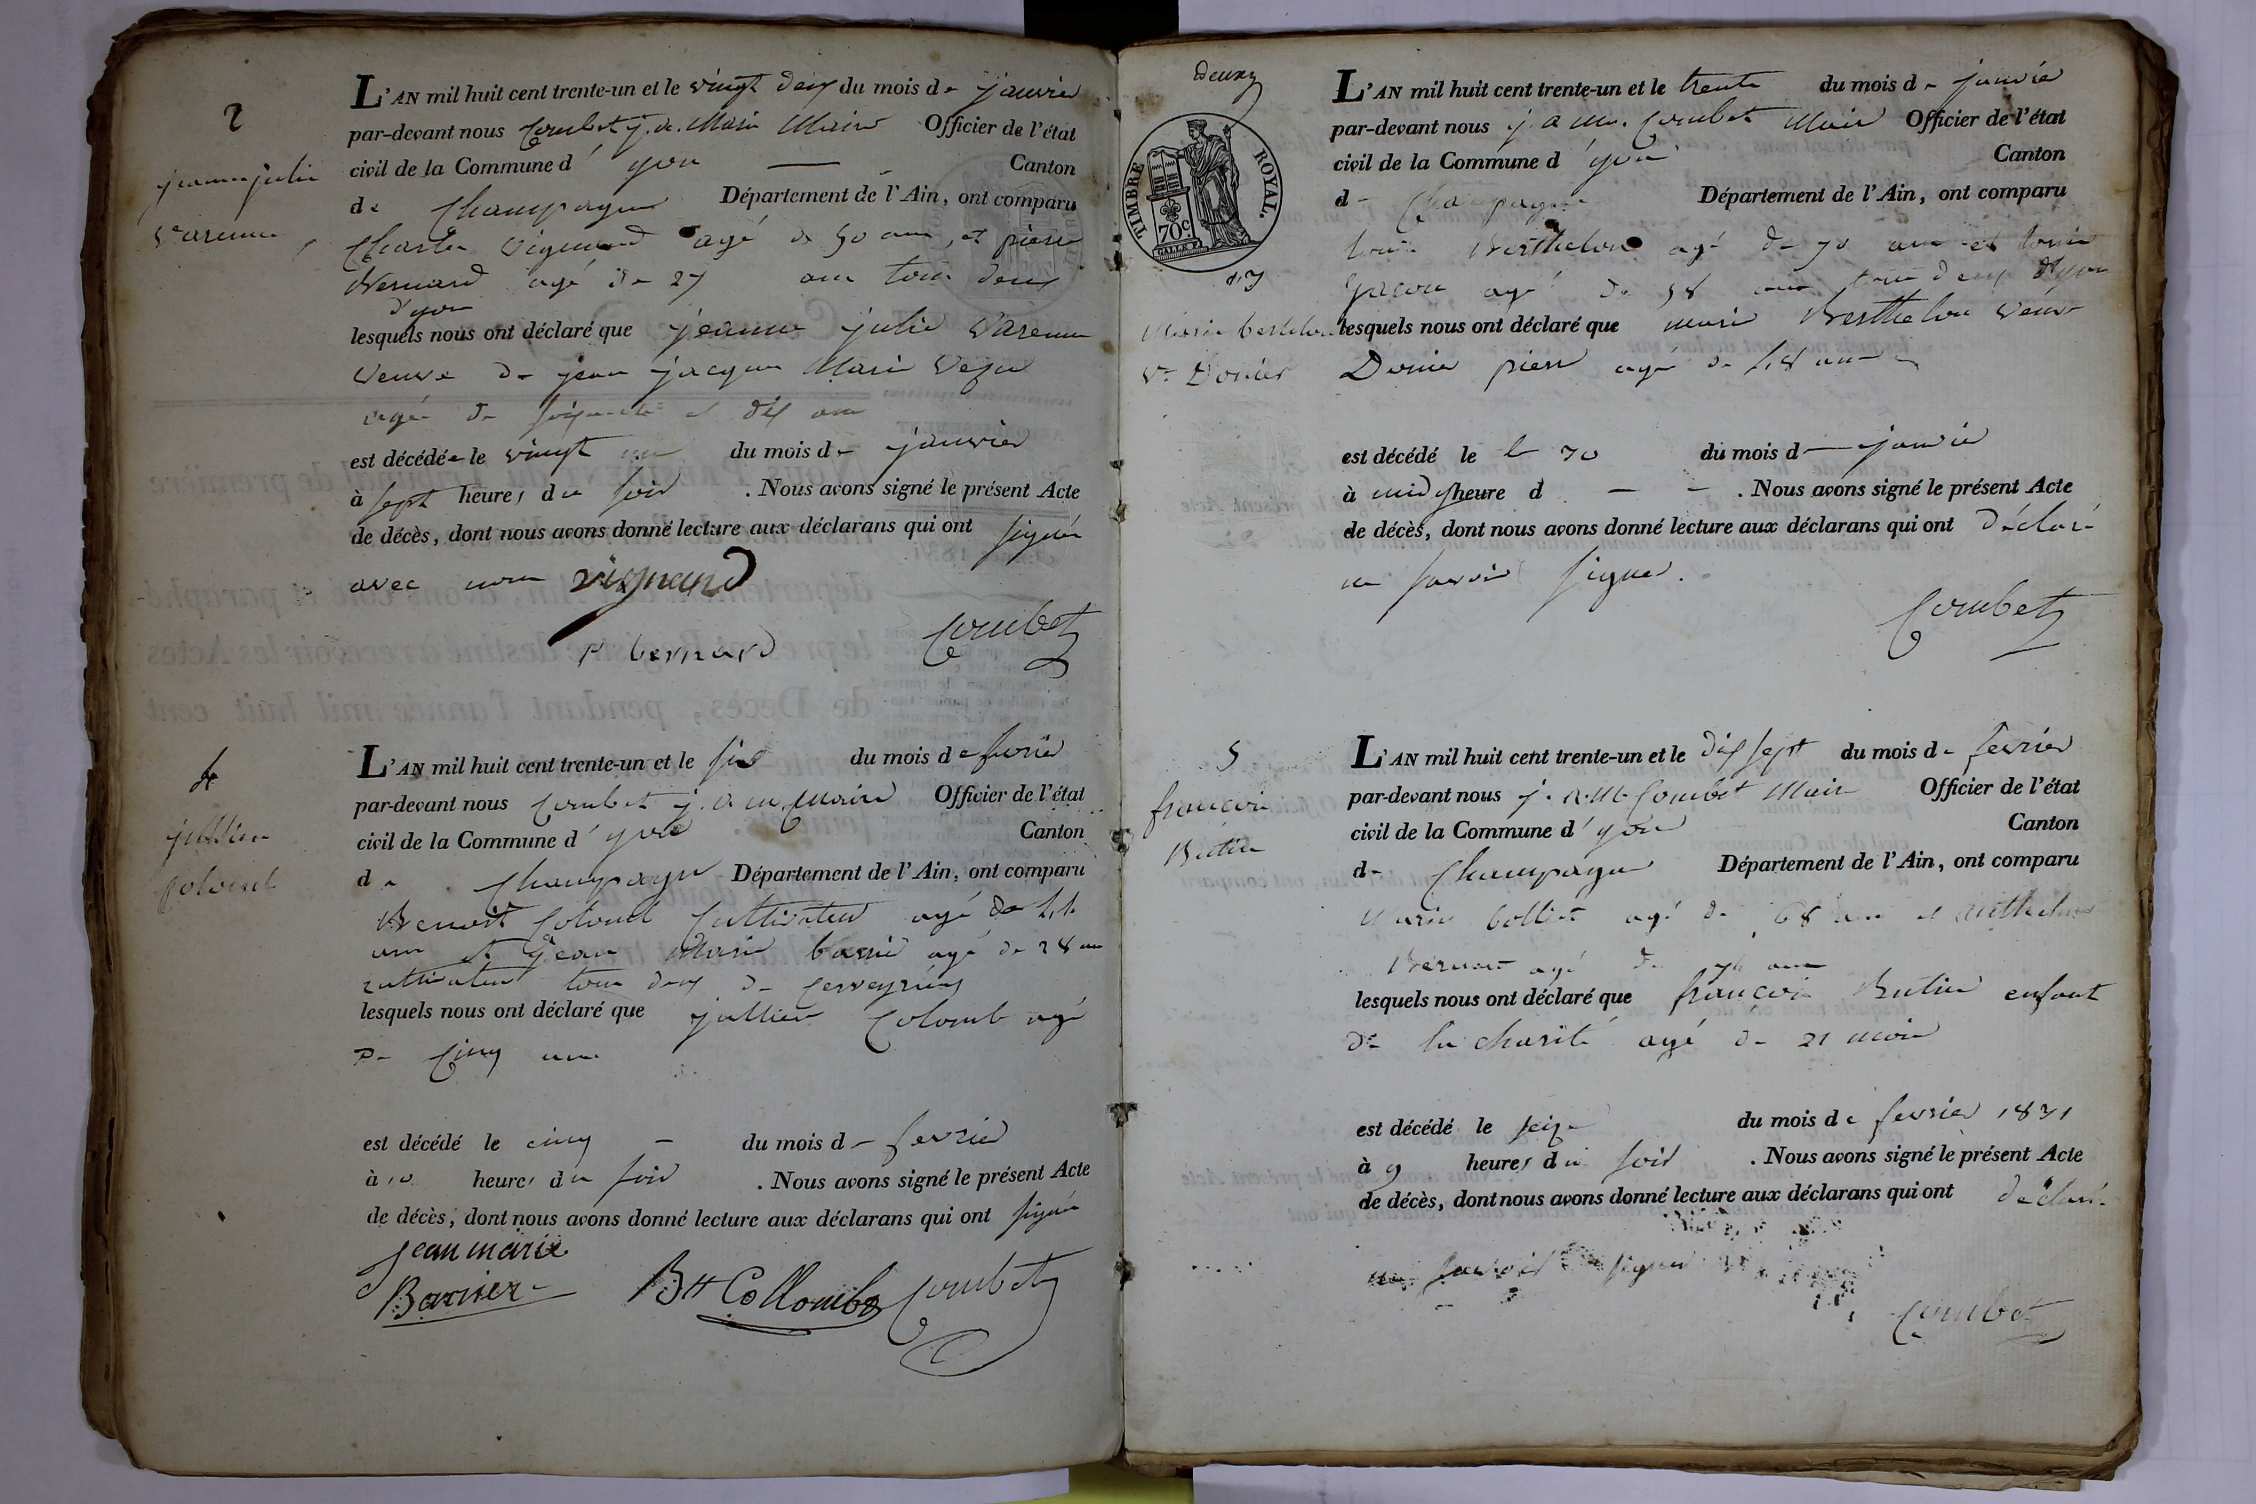 2
jeanne julie
Varenne
L'AN mil huit cent trente-un et le vingt deux du mois de janvier
par-devant nous Combet j. a. Marie Maire Officier de l'état
civil de la Commune d'yon Canton
de Champagne Département de l'Ain, ont comparu
Charles Vignand agé de 50 ans, et pierre
Bernard agé de 27 ans tous deux
d'yon
lesquels nous ont déclaré que jeanne julie Varenne
veuve de jean jacques Marie
agée de soixante et dix ans
est décédée le vingt un du mois de janvier
à sept heures du soir . Nous avons signé le présent Acte
de décès, dont nous avons donné lecture aux déclarans qui ont signés
avec nous vignand
P bernard Combet
4
jullien
Colomb
L'AN mil huit cent trente-un et le six du mois de fevrier
par-devant nous Combet j. a m. Maire Officier de l'état
civil de la Commune d'yon Canton
de Champagne Département de l'Ain, ont comparu
Benoit Colomb Cultivateur agé de 44
ans et jean Marie barnier agé de 28 ans
cultivateur tous deux de Cerveyrieu
lesquels nous ont déclaré que jullien Colomb agé
de cinq ans
est décédé le cinq du mois de fevrier
à 10 heures du soir . Nous avons signé le présent Acte
de décès, dont nous avons donné lecture aux déclarans qui ont signés
jean marie
Barnier Btt Collombe Combet
deux
TIMBRE ROYAL.
70 c.
Marie bertelon
Ve Dornier
L'AN mil huit cent trente-un et le trente du mois de janvier
par-devant nous j. a m. Combet Maire Officier de l'état
civil de la Commune d'yon Canton
de Champagne Département de l'Ain, ont comparu
louis Berthelon agé de 30 ans et louis
agé de 58 ans tous deux d'yon
lesquels nous ont déclaré que marie Berthelon veuve
Dornier pierre agé de 48 ans
est décédé le le 30 du mois de janvier
à midy heure d . Nous avons signé le présent Acte
de décès, dont nous avons donné lecture aux déclarans qui ont déclaré
ne savoir signer.
Combet
5
françois
Butin
L'AN mil huit cent trente-un et le dix sept du mois de fevrier
par-devant nous j. a. M. Combet Maire Officier de l'état
civil de la Commune d'yon Canton
de Champagne Département de l'Ain, ont comparu
Marie bolliet agé de 68 ans et anthelme
Bernard agé de ans
lesquels nous ont déclaré que françois Butin enfant
de la charité agé de 21 mois
est décédé le seize du mois de fevrier 1831
à 9 heures du soir . Nous avons signé le présent Acte
de décès, dont nous avons donné lecture aux déclarans qui ont déclaré
ne savoir signer
Combet